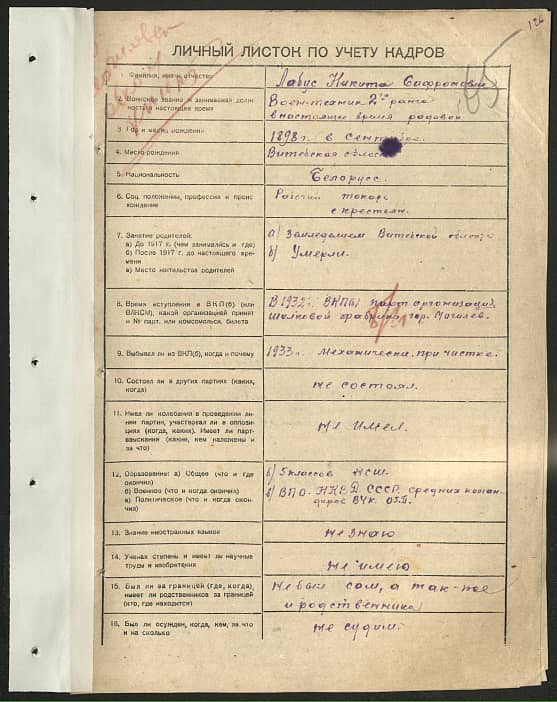 126
65
ЛИЧНЫЙ ЛИСТОК ПО УЧЕТУ КАДРОВ
Фамилия, имя и отчество
Лабус Никита Сафронович
2. Воинское звание и занимаемая долж
ность в настоящее время
Воентехник 2го ранга
в настоящий время рядовой
3. Год и месяц рождения
1898 г. в Сентябре.
4. Место рождения
Витебская област
5. Национальность
Белорусс.
6. Соц. положение, профессия и проис
хождение
Рабочий токарь
с крестьян.
7. Занятие родителей:
а) До 1917 г. (чем занимались и где)
б) После 1917 г. до настоящего вре-
мени
в) Место жительства родителей
а) Земледелием Витебской области
б) Умерли.
8. Время вступления в ВКП(б) (или
ВЛКСМ), какой организацией принят
и № парт. или комсомольск. билета
В 1932 г. ВКП(б) парт организацией
шелковой фабрики гор. Могилев.
9. Выбывал ли из ВКП(б), когда и почему
1933 г. механически при чистке.
10. Состоял ли в других партиях (каких,
когда)
не состоял.
11. Имел ли колебания в проведении ли-
нии партии, участвовал ли в оппози-
циях (когда, каких). Имеет ли парт-
взыскания (какие, кем наложены и
за что)
не имел.
12. Образование: а) Общее (что и где
окончил)
б) Военное (что и когда окончил)
в) Политическое (что и когда окон-
чил)
5 классов НСШ.
ВПО-НКВД СССР средних коман-
диров ВЧК.
13. Знание иностранных языков
не знаю
14. Ученая степень и имеет ли научные
труды и изобретения
не имею
15. Был ли за границей (где, когда),
имеет ли родственников за границей
(кто, где находится)
не был сам, а так-же
и родственники
16. Был ли осужден, когда, кем, за что
и на сколько
не судим.